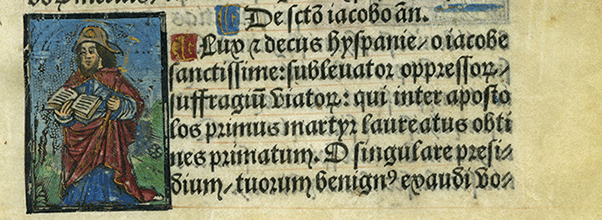 De scto iacobo añ.
O Lux ⁊ decus hyspanie/ o iacobe
sanctissime: subleuator oppressoꝝ/
suffragiū viatoꝝ: qui inter aposto
los primus martyr laureatus obti
nes primatum. O singulare presi/
dium/ tuorum benignꝰ exaudi vo/